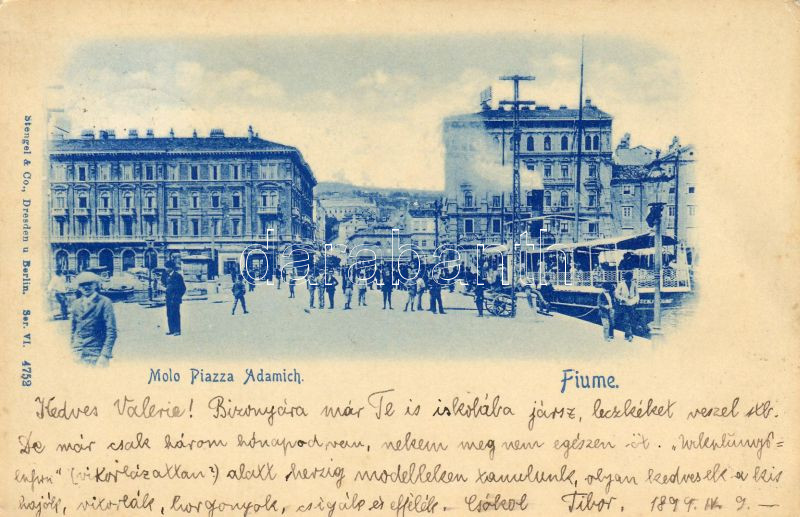 Stengel & Co., Dresden u Berlin. Ser. VI. 4752
databanth
Molo Piazza Adamich.
Fiume.
Kedves Valerie! Bizonyára már Te is iskolába jársz, leczkéket veszel stb.
De már csak három hónapod van, nekem meg nem egészen öt.
(vitorlázattan?) alatt herzig modelleken tanulunk, olyan kedvesek a kis
hajók, vitorlák, horgonyok, csigák és effélék. – Csókol Tibor. 1899. IV. 9. –